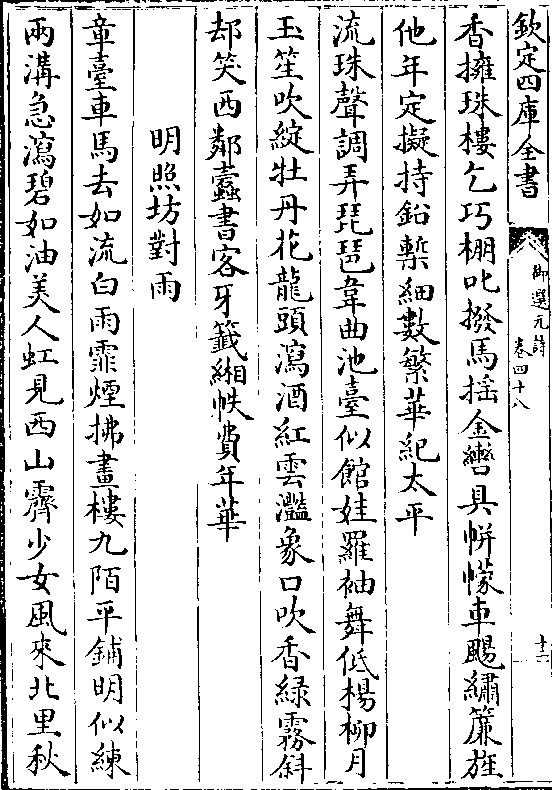 欽定四庫全書
御選元詩
卷四十八
十二
香擁珠樓乞巧棚叱撥馬摇金轡具帡幪車颺繡簾旌
他年定擬持鉛槧細數繁華紀太平
流珠聲調弄琵琶韋曲池臺似館娃羅袖舞低楊柳月
玉笙吹綻牡丹花龍頭瀉酒紅雲灩象口吹香綠霧斜
却笑西鄰蠹書客牙籖緗帙費年華
明照坊對雨
章臺車馬去如流白雨霏煙拂畫樓九陌平鋪明似練
兩溝急瀉碧如油美人虹見西山霽少女風來北里秋